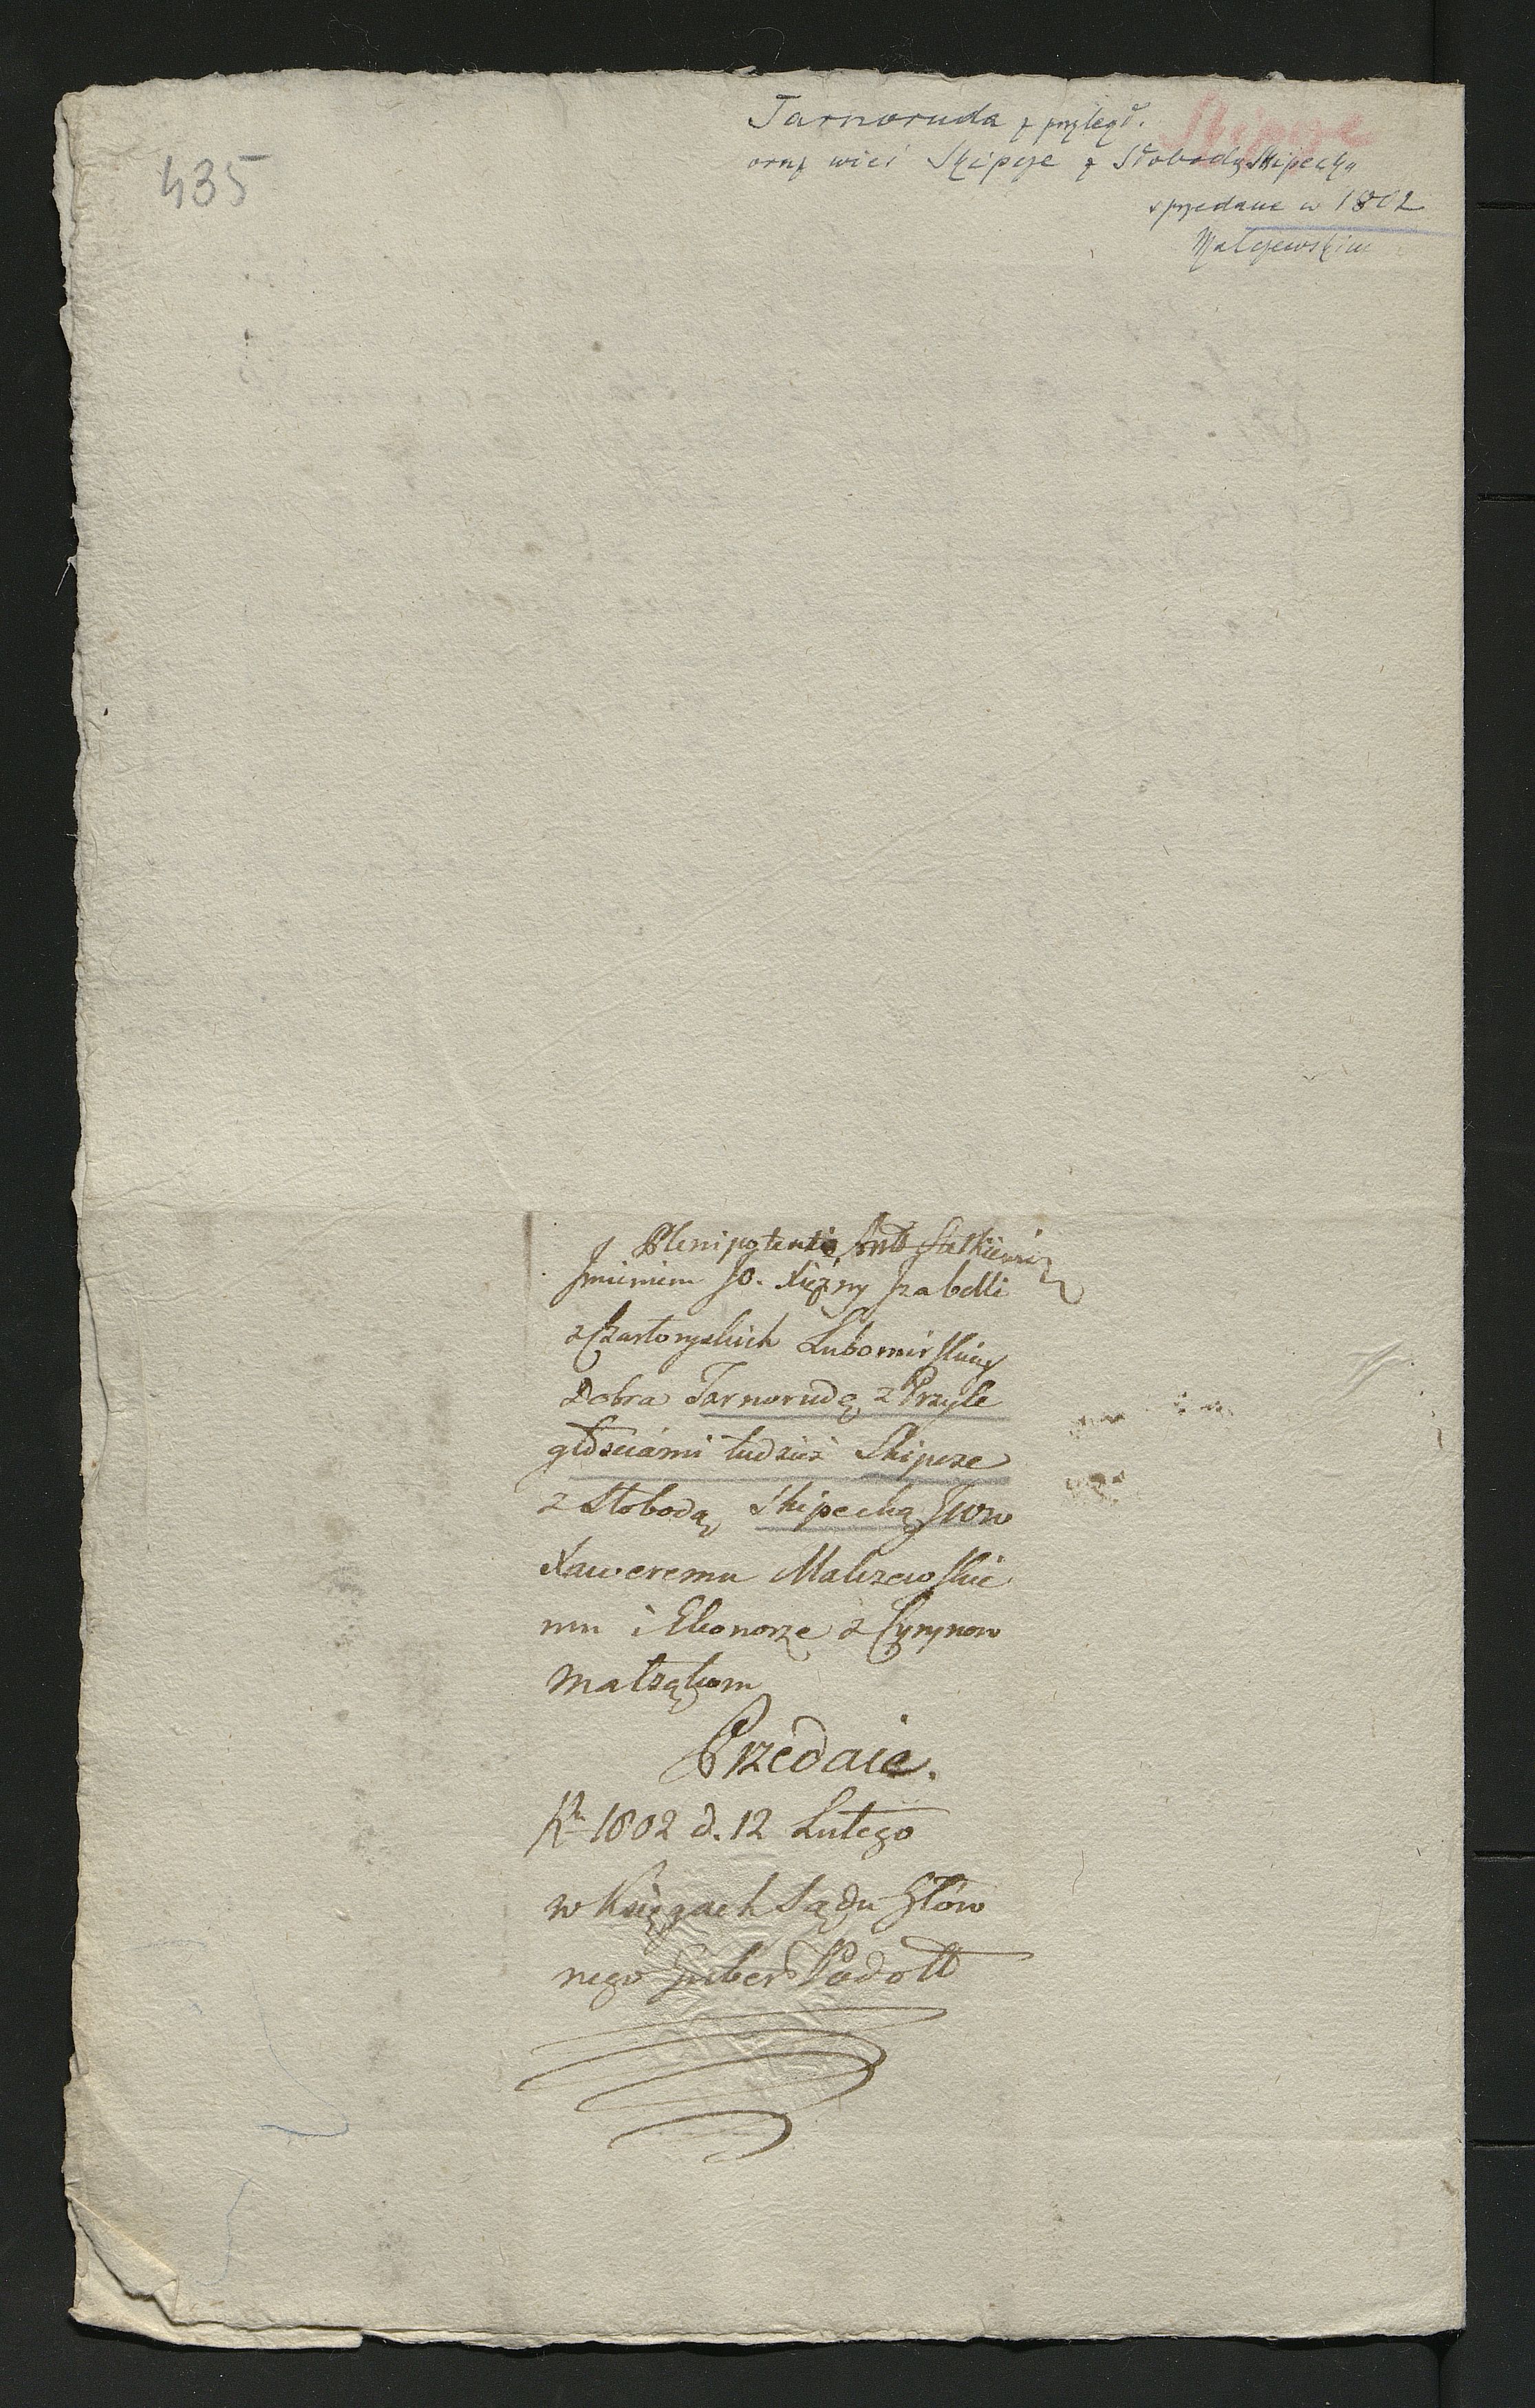 435
Skipcze
Tarnoruda z przległ.
oraz wieś Skipcze z Słobodą Skipecką
sprzedane w 1802
Malczewskim
J Plenipotent Ant
Jmieniem JO. Xiężny Jzabelli
z Czartoryskich Lubomirskiey
Dobra Tarnorudę z Przyle
głościami tudzież Skipcze
z Słobodą Skipecką JWW
Xaweremu Malczewskie
mu i Eleonorze z
Małżąkom
Przedaie.
Rku 1802 d. 12 Lutego
w Księgach Sądu Głów
nego Guber Podoll